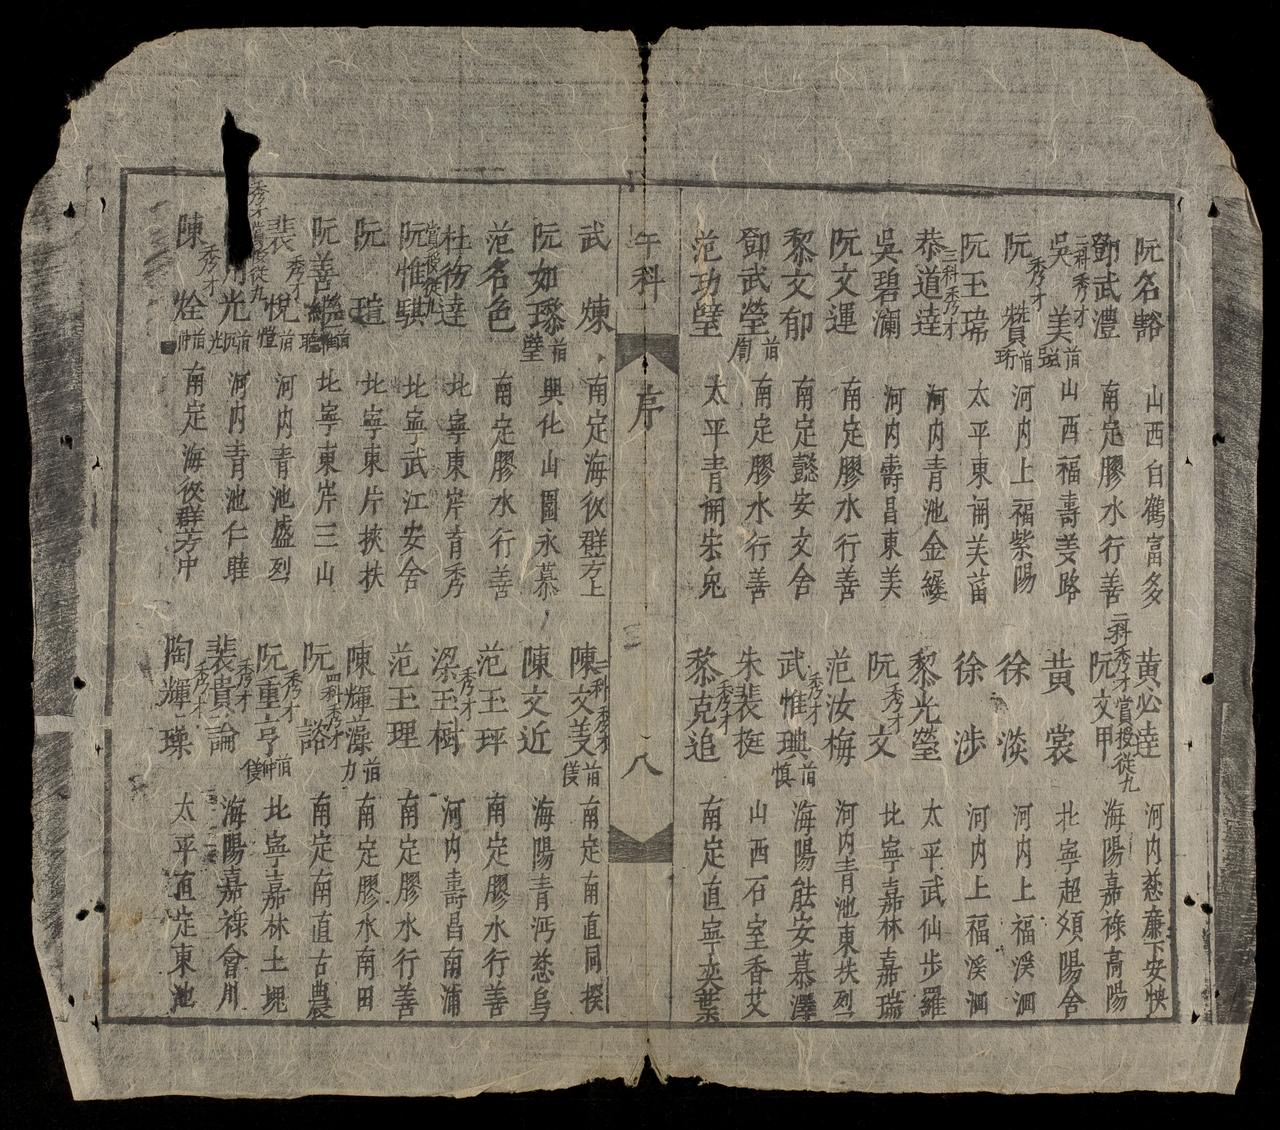 阮名豁 山西白鶴富多
鄧武澧 南定膠水行善
吳美 二科秀才 山西福壽姜路
阮贊 秀才 河内上福紫陽
阮玉瑞 太平東關芙菑
恭道達 三科秀才 河内青池金縷
吳碧瀾 河内壽昌東美
阮文運 南定膠水行善
黎文郁 南定懿安文舍
鄧武瑩 南定膠水行善
范功璧 太平青關宋兔
黃必達 河内慈廉下安快
阮文甲 二科秀才賞授從九 海陽嘉祿高陽
黃裳 北寧超類陽舍
徐淡 河内上福溪洄
徐涉 河内上福溪洄
黎光瑩 太平武仙步羅
阮文 秀才 北寧嘉林嘉瑞
范汝梅 河内青池東扶烈
武惟琠 秀才 慎 海陽能安慕澤
朱裴梃 山西石室香艾
黎克追 秀才 南定直寧奕葉
午科 序 八
武煉 南定海後群方上
阮如 璧 興化山圍永慕
范名色 南定膠水行善
杜葯達 北寧東岸育秀
阮惟騏 賞授從九 北寧武江安舍
阮 北寧東片挾扶
阮善繼 聽 北寧東岸三山
裴悅 秀才 愷 河内青池盛烈
光 秀才賞授從九 河内青池仁睦
陳烇 秀才 仲 南定海後群方中
陳文美 三科秀才 南定南直同揆
陳文近 海陽青沔慈烏
范玉珥 南定膠水行善
梁玉樹 秀才 河内壽昌南浦
范玉理 南定膠水行善
陳輝藻 力 南定膠水南田
阮諮 四科秀才 南定南直古農
阮重亨 秀才 北寧嘉林土塊
裴貴論 秀才 海陽嘉祿會川
陶輝璪 秀才 太平直定東池